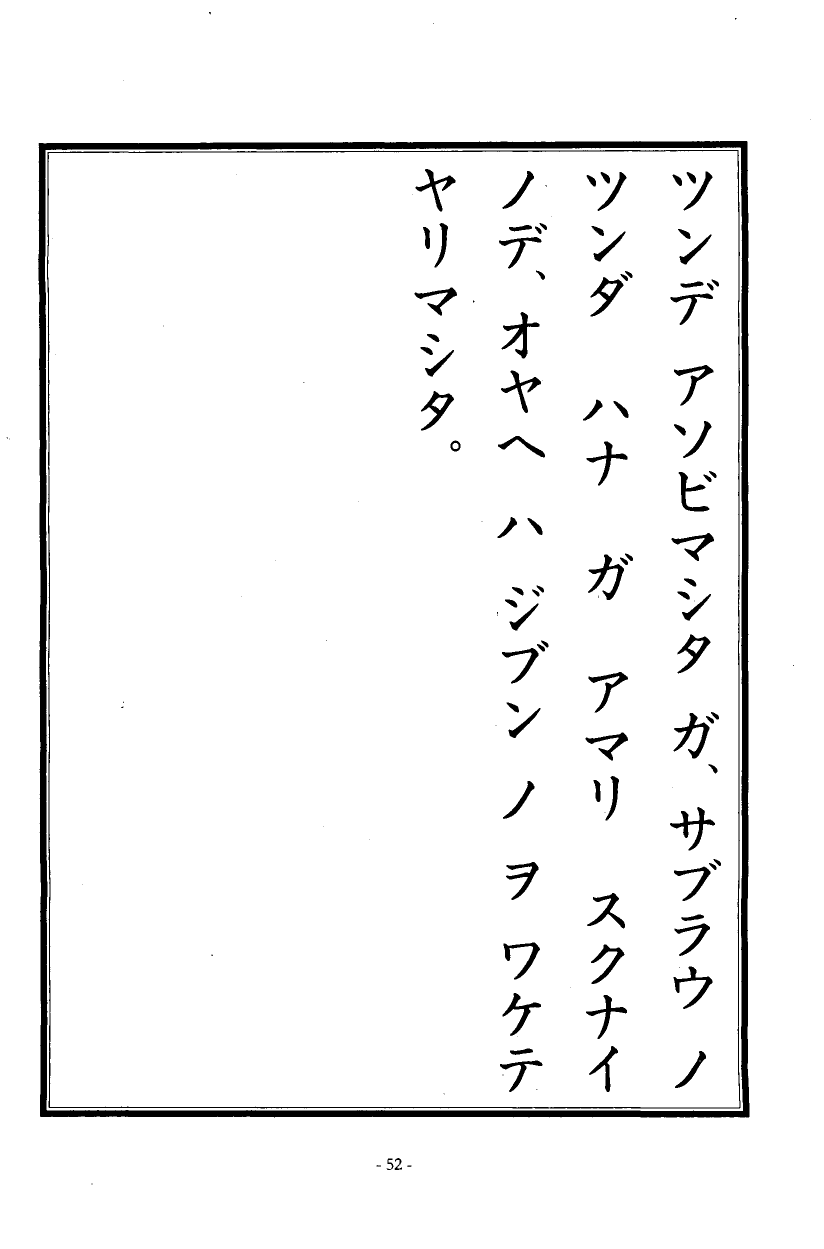 ツンデ アソビマシタ ガ、サブラウ ノ
ツンダ ハナ ガ アマリ スクナイ
ノデ、オヤヘ ハ ジブン ノ ヲ ワケテ
ヤリマシタ。
- 52 -